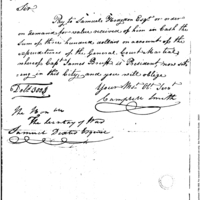 Sir.
Pay to Samuel Hodgdon Esqr or order
on demand for value received of him in Cash the
Sum of three hundred dollars on account of the
expenditures of the General Court Martial,
whereof Capt James Bruff is President, now sitt
ing in this City, and you will oblige
Your Mo. Ob. Servt
Campbell Smith
Dolls 300
The Honble
The Secretary of War
Samuel Esquire